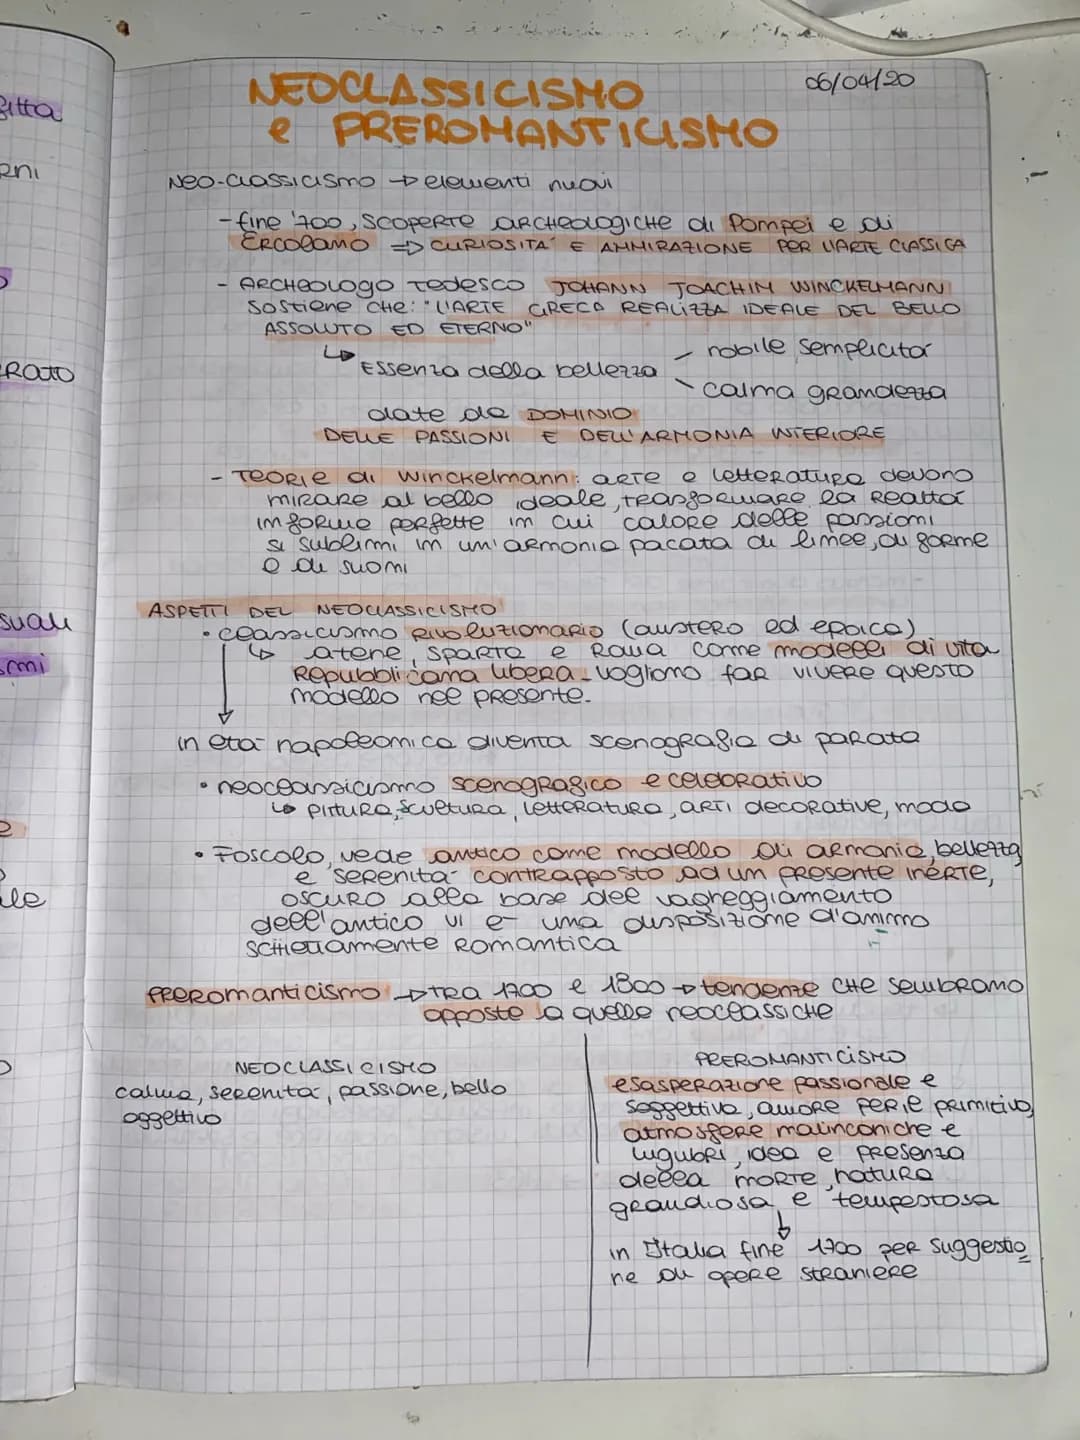 06/04/20
NEOCLASSICISMO
e PREROMANTICISMO
Neo-classicismo → elementi nuovi
- fine '700, SCOPERTE ARCHEOLOGICHE di Pompei e di
ERCOLANO => CURIOSITA' E AMMIRAZIONE PER L'ARTE CLASSICA
- ARCHEOLOGO Tedesco JOHANN JOACHIM WINCKELMANN
Sostiene CHE: "L'ARTE GRECA REALIZZA IDEALE DEL BELLO
ASSOLUTO ED ETERNO"
↳ Essenza della bellezza - nobile semplicità
- calma grandezza
date da DOMINIO
DELLE PASSIONI E DELL'ARMONIA INTERIORE
- TEORIE di Winckelmann: arte e letteratura devono
mirare al bello ideale, trasformare la Realtà
in forme perfette in cui calore delle passioni
si sublimi in un'armonia pacata di linee, di forme
e di suoni
ASPETTI DEL NEOCLASSICISMO
• classicismo Rivoluzionario (austero ed epoica)
↳ atene, sparta e Roma come modelli di vita
Repubblicana libera - vogliono far vivere questo
modello nel presente.
in età napoleonica diventa scenografia di parata
• neoclassicismo scenografico e celebrativo
↳ pittura, scultura, letteratura, arti decorative, moda
• Foscolo, vede antico come modello di armonia, bellezza
e serenità contrapposto ad un presente inerte,
oscuro alla base del vagheggiamento
dell'antico vi è una disposizione d'animo
schiettamente Romantica
Preromanticismo → TRA 1700 e 1800 → tendenze CHE sembrano
opposte a quelle neoclassiche
NEOCLASSICISMO
calma, serenità, passione, bello
oggettivo
PREROMANTICISMO
esasperazione passionale e
soggettiva, amore per il primitivo,
atmosfere malinconiche e
lugubri, idea e presenza
della morte, natura
grandiosa e tempestosa
↓
in Italia fine 1700 per suggestio
ne di opere straniere
fitta
erni
RATO
suali
ale